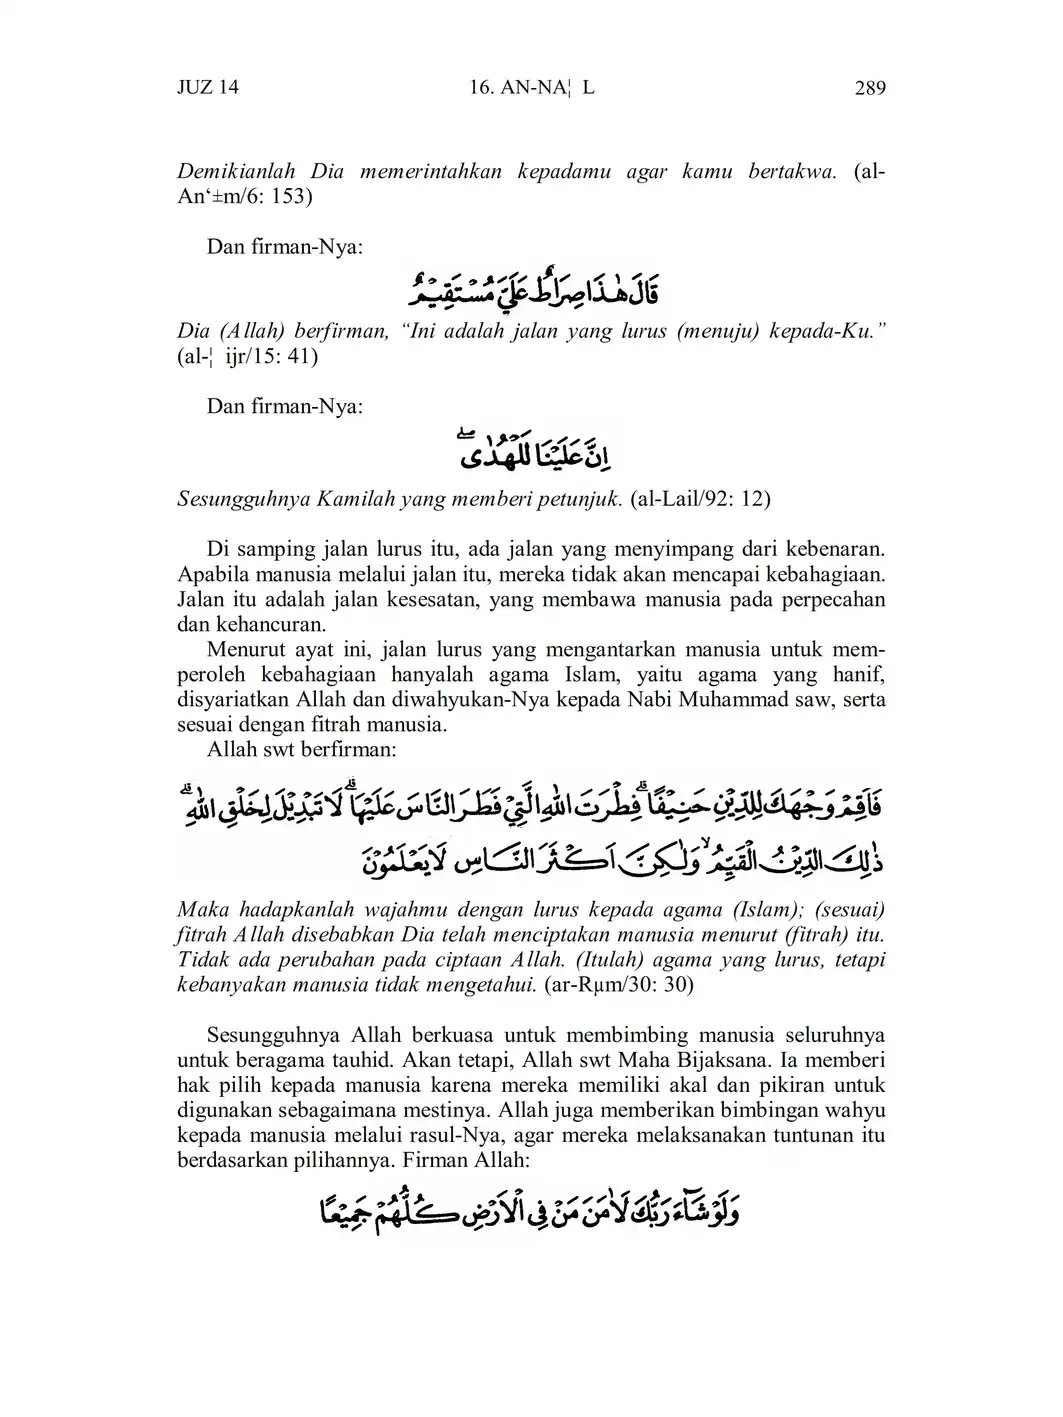 JUZ 14 16. AN-NA¦ L 289
Demikianlah Dia memerintahkan kepadamu agar kamu bertakwa. (al-
An‘±m/6: 153)
Dan firman-Nya:
قَالَ هٰذَا صِرَاطٌ عَلَيَّ مُسْتَقِيْمٌ
Dia (Allah) berfirman, “Ini adalah jalan yang lurus (menuju) kepada-Ku.”
(al-¦ ijr/15: 41)
Dan firman-Nya:
اِنَّ عَلَيْنَا لَلْهُدٰىۖ
Sesungguhnya Kamilah yang memberi petunjuk. (al-Lail/92: 12)
Di samping jalan lurus itu, ada jalan yang menyimpang dari kebenaran.
Apabila manusia melalui jalan itu, mereka tidak akan mencapai kebahagiaan.
Jalan itu adalah jalan kesesatan, yang membawa manusia pada perpecahan
dan kehancuran.
Menurut ayat ini, jalan lurus yang mengantarkan manusia untuk mem-
peroleh kebahagiaan hanyalah agama Islam, yaitu agama yang hanif,
disyariatkan Allah dan diwahyukan-Nya kepada Nabi Muhammad saw, serta
sesuai dengan fitrah manusia.
Allah swt berfirman:
فَاَقِمْ وَجْهَكَ لِلدِّيْنِ حَنِيْفًاۗ فِطْرَتَ اللّٰهِ الَّتِيْ فَطَرَ النَّاسَ عَلَيْهَاۗ لَا تَبْدِيْلَ لِخَلْقِ اللّٰهِۗ
ذٰلِكَ الدِّيْنُ الْقَيِّمُۙ وَلٰكِنَّ اَكْثَرَ النَّاسِ لَا يَعْلَمُوْنَ
Maka hadapkanlah wajahmu dengan lurus kepada agama (Islam); (sesuai)
fitrah Allah disebabkan Dia telah menciptakan manusia menurut (fitrah) itu.
Tidak ada perubahan pada ciptaan Allah. (Itulah) agama yang lurus, tetapi
kebanyakan manusia tidak mengetahui. (ar-Rµm/30: 30)
Sesungguhnya Allah berkuasa untuk membimbing manusia seluruhnya
untuk beragama tauhid. Akan tetapi, Allah swt Maha Bijaksana. Ia memberi
hak pilih kepada manusia karena mereka memiliki akal dan pikiran untuk
digunakan sebagaimana mestinya. Allah juga memberikan bimbingan wahyu
kepada manusia melalui rasul-Nya, agar mereka melaksanakan tuntunan itu
berdasarkan pilihannya. Firman Allah:
وَلَوْ شَاۤءَ رَبُّكَ لَاٰمَنَ مَنْ فِى الْاَرْضِ كُلُّهُمْ جَمِيْعًا